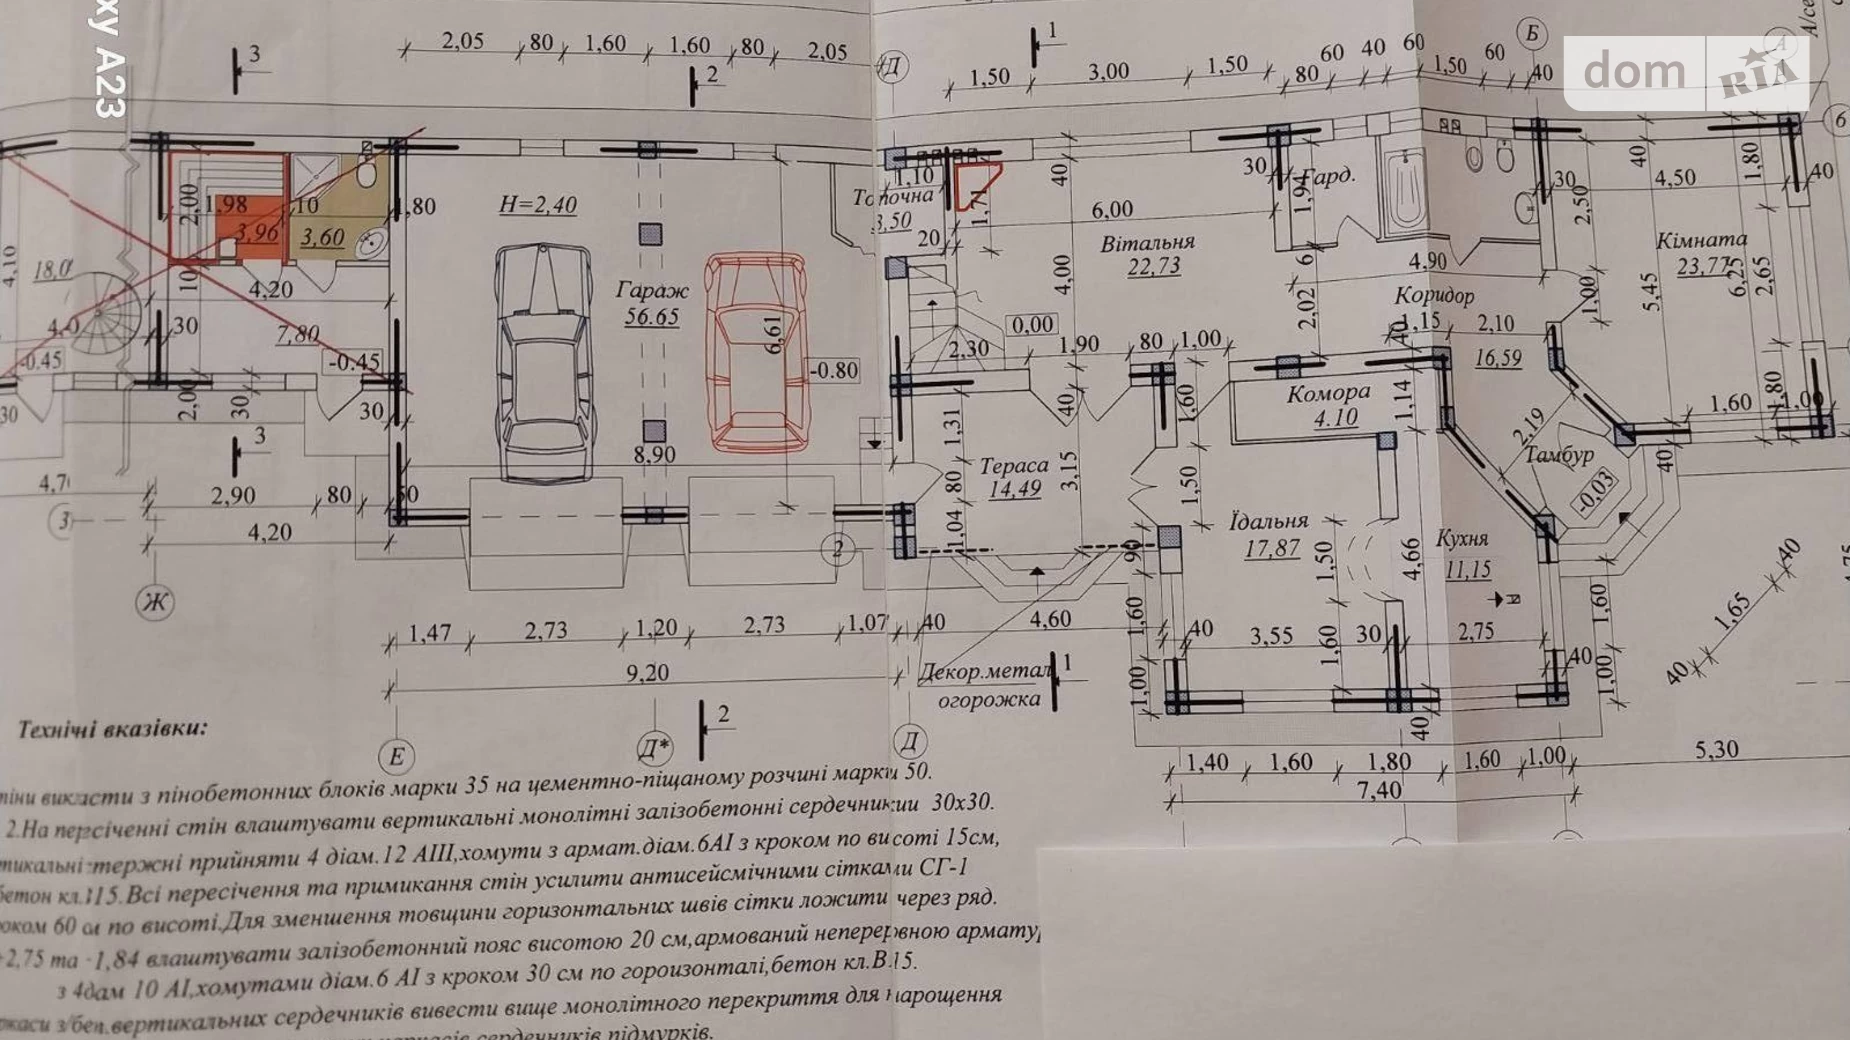 ху A23
dom RIA
3
2,05 80 1,60 1,60 80 2,05
2
Д
1
1,50 3,00 1,50 80 60 40 60 1,50 60 40
Б
А
6
2,00
1,98
3,96
10
3,60
1,80
H=2,40
Гараж
56.65
6,61
-0.80
8,90
4,10
4,20
30
7,80
-0.45
-0.45
10
2,00
30
30
3
1,10
Топочна
3,50
1,71
20
40
6,00
Вітальня
22,73
4,00
0,00
2,30 1,90 80 1,00
30
1,94
Гард.
2,02
4,90
Коридор
1,15 2,10
16,59
30
2,50
1,00
40
4,50
1,80
40
Кімната
23,77
5,45
6,25
2,65
1,60
1,80
1,00
40
Комора
4.10
1,14
1,60
2,19
Тамбур
-0,03
1,31
80
1,04
Тераса
14,49
3,15
40
1,50
90
Їдальня
17,87
1,50
4,66
Кухня
11,15
4,70 2,90 80
3
4,20
Ж
2
1,47 2,73 1,20 2,73 1,07 40 4,60
9,20
1,60
1,00
40 3,55 1,60 30 2,75 40
1,60
1,00
40 1,65 40
Декор.метал
огорожка
1
2
Е
Д*
Д
40
1,40 1,60 1,80 1,60 1,00
5,30
7,40
Технічні вказівки:
викласти з пінобетонних блоків марки 35 на цементно-піщаному розчині марки 50.
2.На персіченні стін влаштувати вертикальні монолітні залізобетонні сердечники 30х30.
тержні прийняти 4 діам.12 АІІІ,хомути з армат.діам.6АІ з кроком по висоті 15см,
Всі пересічення та примикання стін усилити антисейсмічними сітками СГ-1
60 см по висоті.Для зменшення товщини горизонтальних швів сітки ложити через ряд.
2,75 та -1,84 влаштувати залізобетонний пояс висотою 20 см,армований неперервною армату
з 4дам 10 АІ,хомутами діам.6 АІ з кроком 30 см по гороизонталі,бетон кл.В15.
вертикальних сердечників вивести вище монолітного перекриття для нарощення
сердечників підмурків.